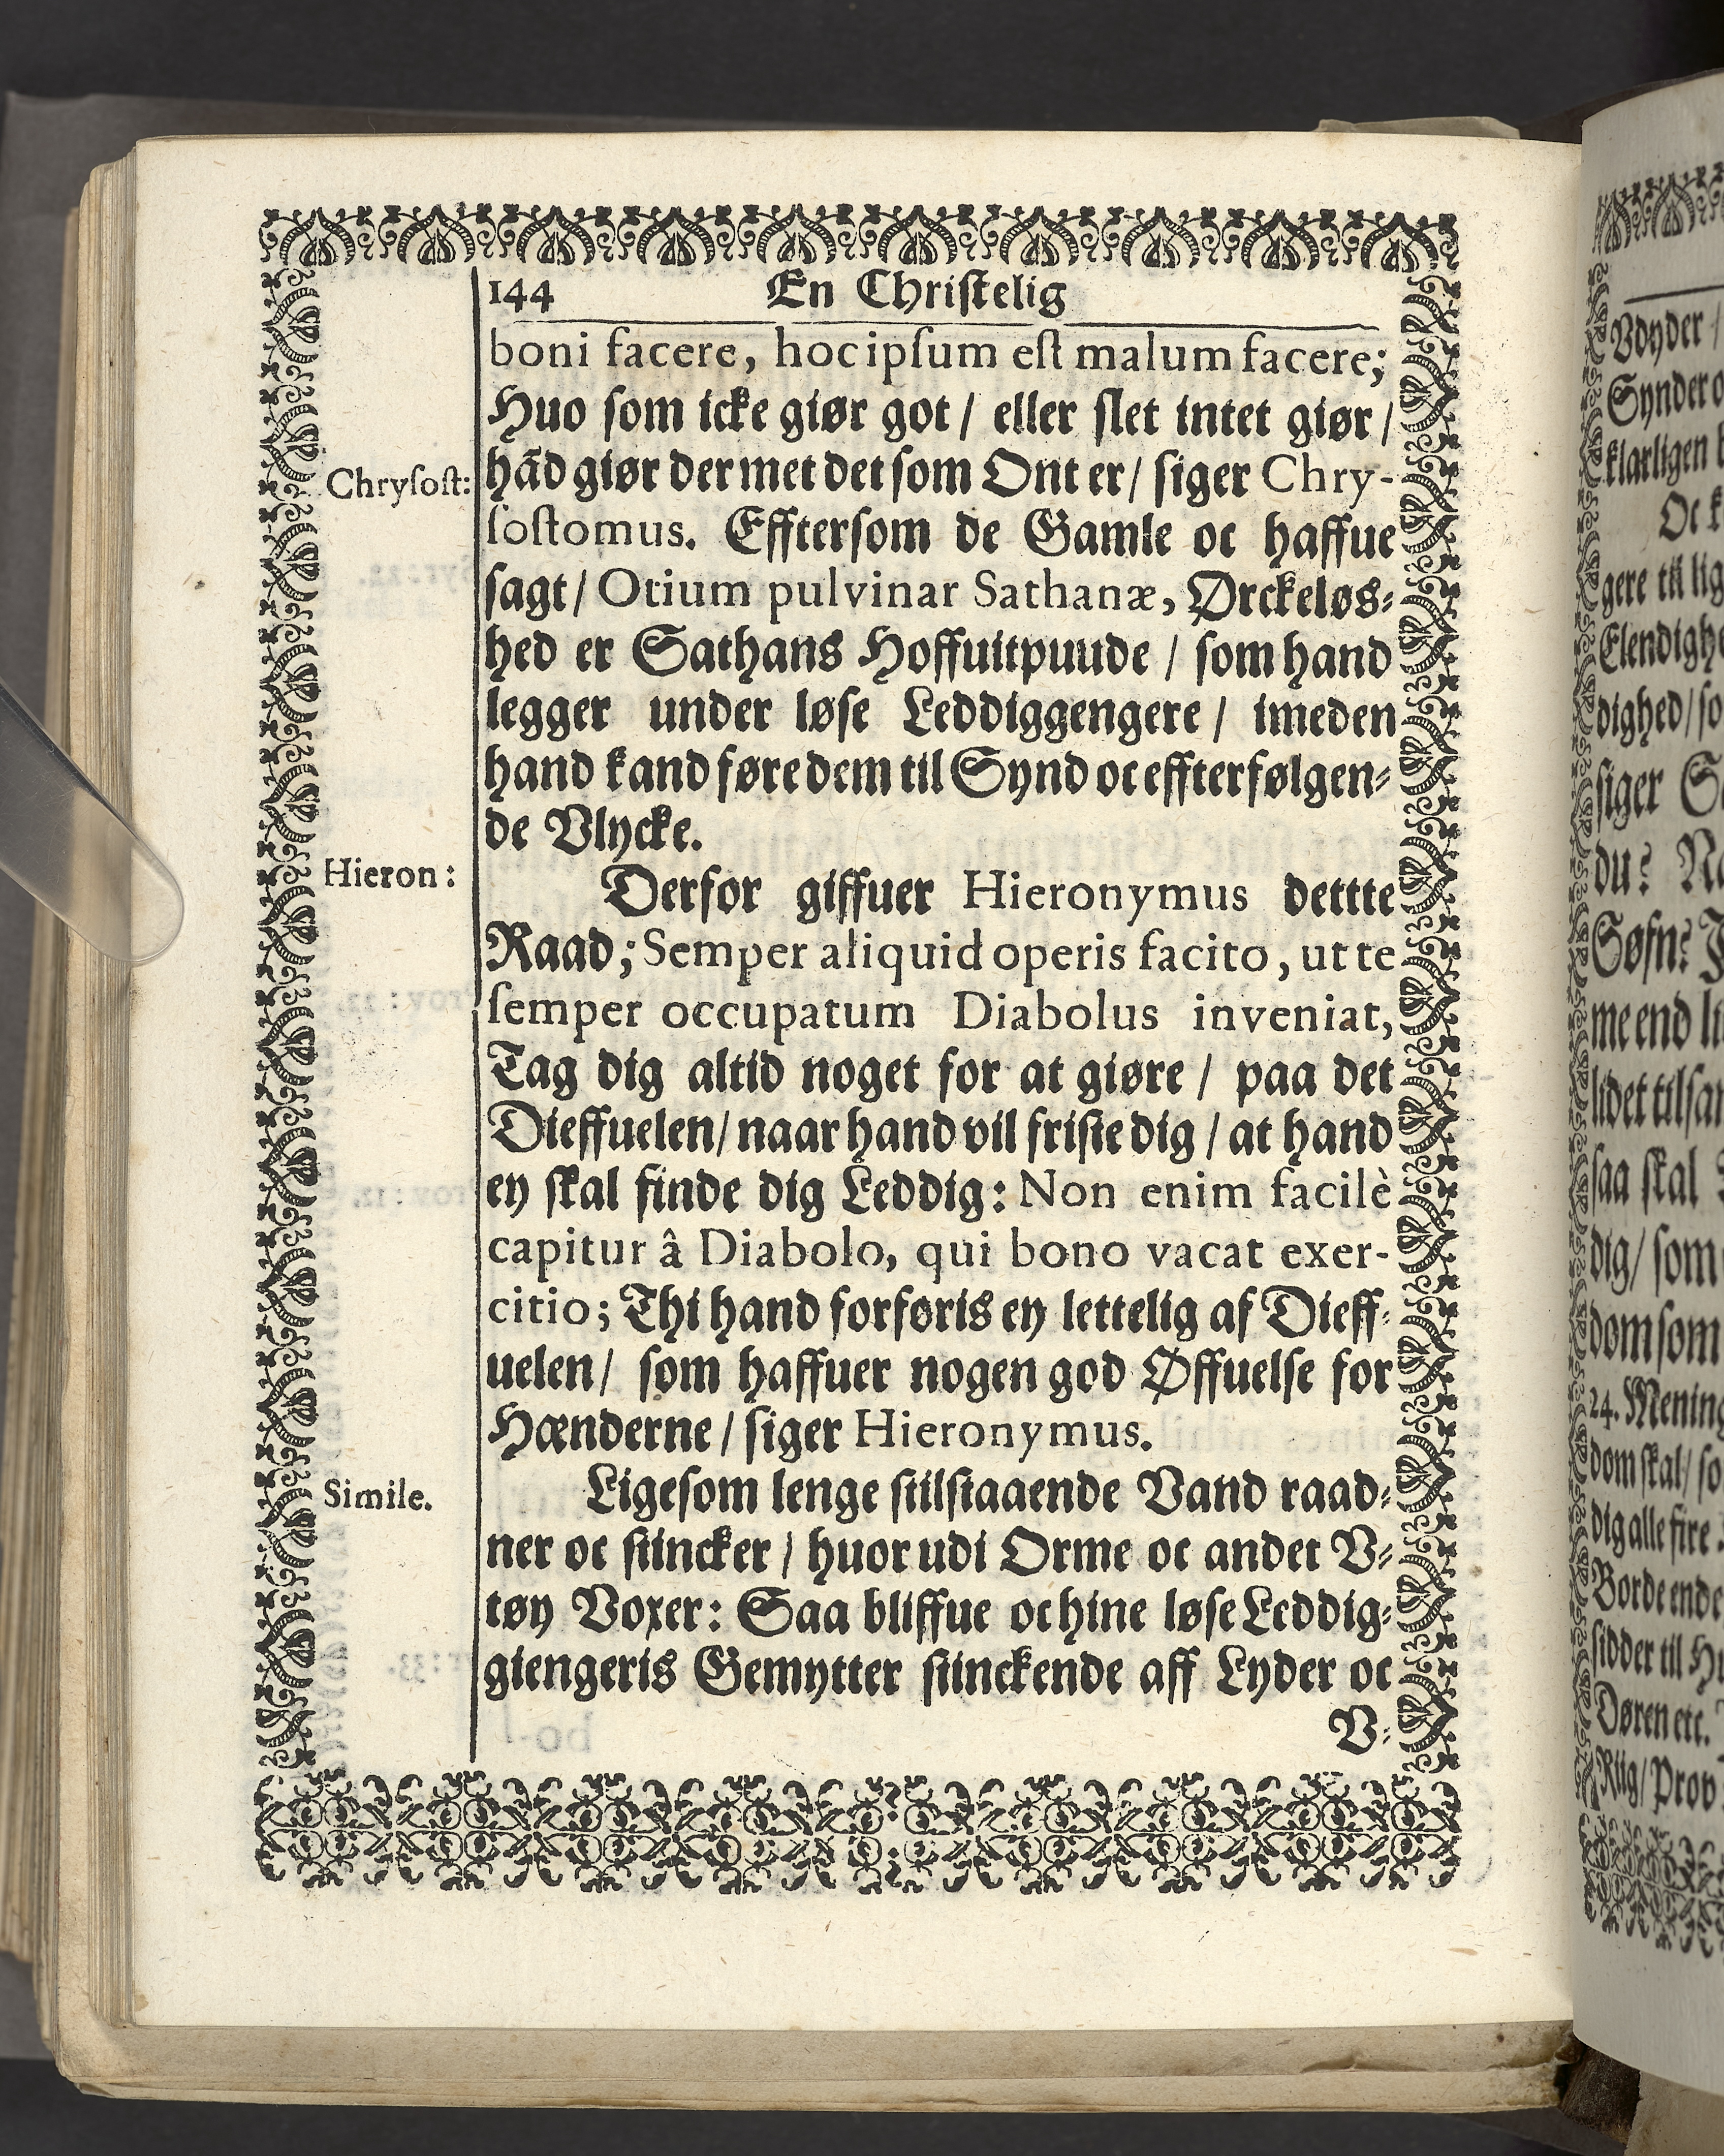 144 En Christelig
boni facere, hoc ipsum est malum facere;
Huo som icke giør got / eller slet intet giør /
Chrysost:
hãd giør der met det som Ont er / siger Chry-
sostomus. Efftersom de Gamle oc haffue
sagt / Otium pulvinar Sathanæ, Ørckeløs-
hed er Sathans Hoffuitpuude / som hand
legger under løse Leddiggengere / imeden
hand kand føre dem til Synd oc effterfølgen-
de Vlycke.
Hieron:
Derfor giffuer Hieronymus dettte
Raad; Semper aliquid operis facito, ut te
semper occupatum Diabolus inveniat,
Tag dig altid noget for at giøre / paa det
Dieffuelen / naar hand vil friste dig / at hand
ey skal finde dig Leddig: Non enim facilè
capitur â Diabolo, qui bono vacat exer-
citio; Thi hand forføris ey lettelig af Dieff-
uelen / som haffuer nogen god Øffuelse for
Hænderne / siger Hieronymus.
Simile.
Ligesom lenge stilstaaende Vand raad-
ner oc stincker / huor udi Orme oc andet V-
tøy Voxer: Saa bliffue oc hine løse Leddig-
giengeris Gemytter stinckende aff Lyder oc
V-
Vdyder /
Synder o
klarligen
Oc k
gere til lig
Elendighe
dighed / so
siger S
du? Na
Søfn?
me end li
lidet tilsa
saa skal
dig / som
dom som
24. Mening
dom skal / so
dig alle fire
Borde ende
sidder til Hu
Døren etc.
Riig / Prov